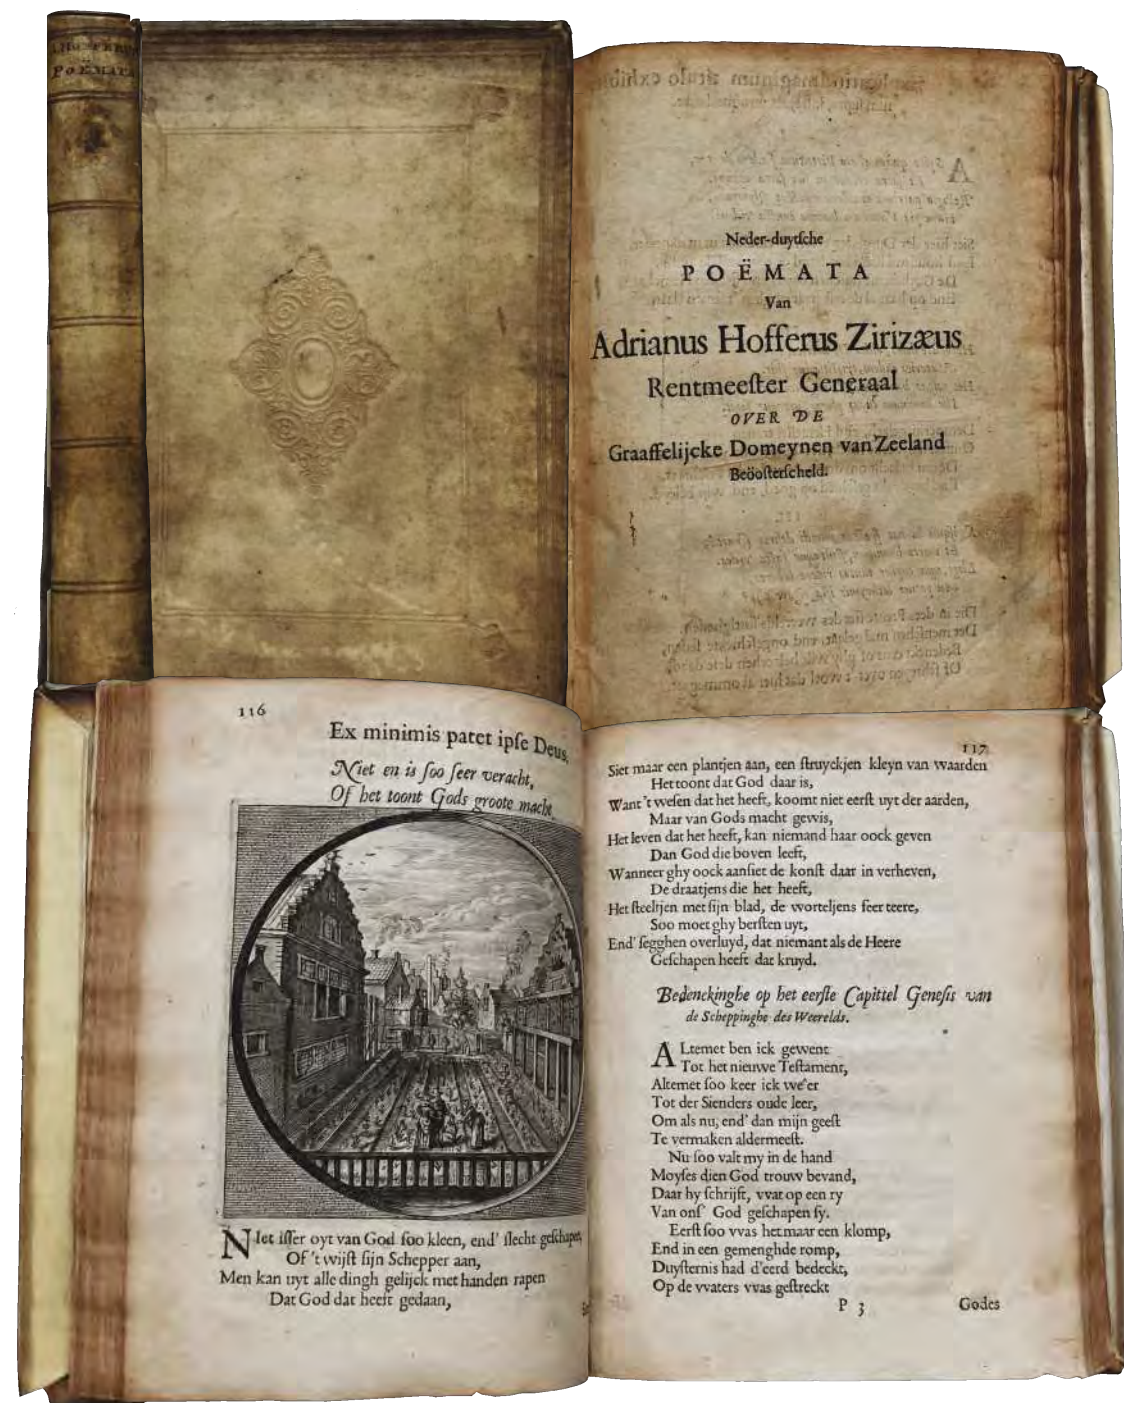 POEMATA
Neder-duytsche
POËMATA
Van
Adrianus Hofferus Zirizæus
Rentmeester Generaal
OVER DE
Graaffelijcke Domeynen van Zeeland
Beöosterscheld.
116
Ex minimis patet ipse Deus.
Niet en is soo seer veracht,
Of het toont Gods groote macht
NIet isser oyt van God soo kleen, end' slecht geschapen,
Of 't wijst sijn Schepper aan,
Men kan uyt alle dingh gelijck met handen rapen
Dat God dat heeft gedaan,
117
Siet maar een plantjen aan, een struyckjen kleyn van waarden
Het toont dat God daar is,
Want 't wesen dat het heeft, koomt niet eerst uyt der aarden,
Maar van Gods macht gewis,
Het leven dat het heeft, kan niemand haar oock geven
Dan God die boven leeft,
Wanneer ghy oock aansiet de konst daar in verheven,
De draatjens die het heeft,
Het steeltjen met sijn blad, de worteljens seer teere,
Soo moet ghy bersten uyt,
End' segghen overluyd, dat niemant als de Heere
Geschapen heeft dat kruyd.
Bedenckinghe op het eerste Capittel Genesis van
de Scheppinghe des Weerelds.
ALtemet ben ick gewent
Tot het nieuwe Testament,
Altemet soo keer ick we'er
Tot der Sienders oude leer,
Om als nu, end' dan mijn geest
Te vermaken aldermeest.
Nu soo valt my in de hand
Moyses dien God trouw bevand,
Daar hy schrijft, wat op een ry
Van ons' God geschapen sy.
Eerst soo was het maar een klomp,
End in een gemenghde romp,
Duysternis had d'eerd bedeckt,
Op de waters was gestreckt
P 3 Godes